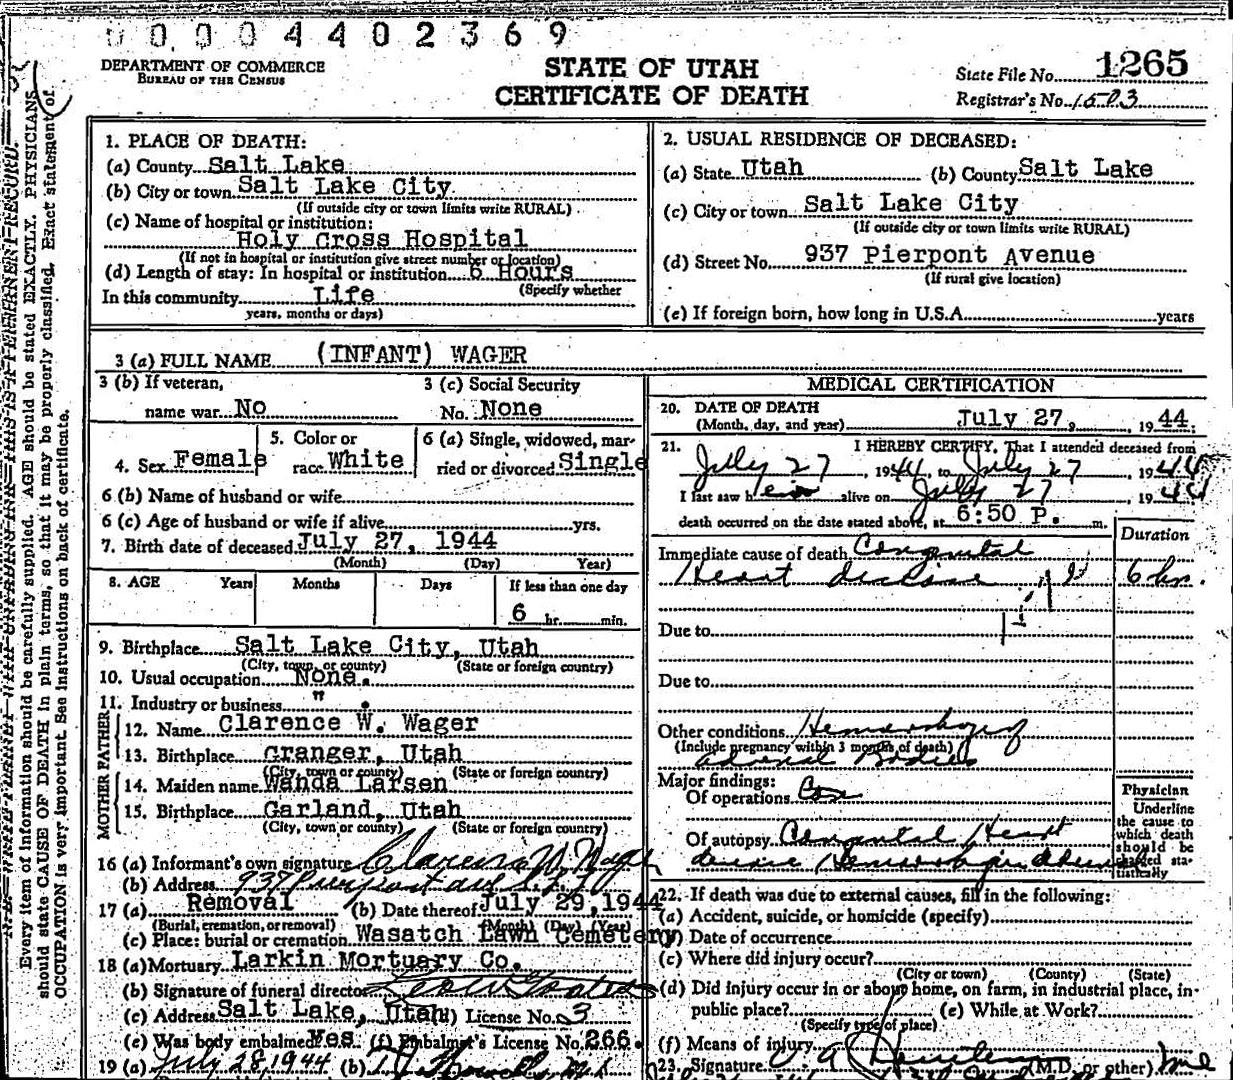 00004402369
DEPARTMENT OF COMMERCE
BUREAU OF THE CENSUS
STATE OF UTAH
CERTIFICATE OF DEATH
State File No. 1265
Registrar's No. 1503
Every item of information should be carefully supplied. AGE should be stated EXACTLY. PHYSICIANS
should state CAUSE OF DEATH in plain terms, so that it may be properly classified. Exact statement of
OCCUPATION is very important. See instructions on back of certificate.
1. PLACE OF DEATH:
(a) County Salt Lake
(b) City or town Salt Lake City
(If outside city or town limits write RURAL)
(c) Name of hospital or institution:
Holy Cross Hospital
(If not in hospital or institution give street number or location)
(d) Length of stay: In hospital or institution 6 Hours
(Specify whether
In this community Life
years, months or days)
2. USUAL RESIDENCE OF DECEASED:
(a) State Utah (b) County Salt Lake
(c) City or town Salt Lake City
(If outside city or town limits write RURAL)
(d) Street No. 937 Pierpont Avenue
(If rural give location)
(e) If foreign born, how long in U.S.A. years
3 (a) FULL NAME (INFANT) WAGER
3 (b) If veteran,
name war No
3 (c) Social Security
No. None
4. Sex Female
5. Color or
race White
6 (a) Single, widowed, mar-
ried or divorced Single
6 (b) Name of husband or wife
6 (c) Age of husband or wife if alive yrs.
7. Birth date of deceased July 27, 1944
(Month) (Day) Year)
8. AGE Years Months Days If less than one day
6 hr. min.
9. Birthplace Salt Lake City, Utah
(City, town, or county) (State or foreign country)
10. Usual occupation None.
11. Industry or business " .
FATHER
12. Name Clarence W. Wager
13. Birthplace Granger, Utah
(City, town or county) (State or foreign country)
MOTHER
14. Maiden name Wanda Larsen
15. Birthplace Garland, Utah
(City, town or county) (State or foreign country)
16 (a) Informant's own signature Clarence W. Wager
(b) Address 937 Pierpont ave
17 (a) Removal (b) Date thereof July 29, 1944
(Burial, cremation, or removal) (Month) (Day) (Year)
(c) Place: burial or cremation Wasatch Lawn Cemetery
18 (a) Mortuary Larkin Mortuary Co.
(b) Signature of funeral director
(c) Address Salt Lake, Utah (d) License No. 3
(e) Was body embalmed Yes (f) Embalmer's License No. 266.
19 (a) July 28, 1944 (b)
MEDICAL CERTIFICATION
20. DATE OF DEATH
(Month, day, and year) July 27, 1944.
21. I HEREBY CERTIFY, That I attended deceased from
July 27 1944 to July 27 1944
I last saw her alive on July 27, 1944
death occurred on the date stated above, at 6:50 P. m.
Duration
Immediate cause of death Congenital
Heart disease 6 hr.
Due to
Due to
Other conditions Hemorrhage of
(Include pregnancy within 3 months of death)
adrenal Bodies
Major findings:
Of operations
Of autopsy Congenital Heart
disease Hemorrhage in
Physician
Underline
the cause to
which death
should be
charged sta-
tistically
22. If death was due to external causes, fill in the following:
(a) Accident, suicide, or homicide (specify)
(b) Date of occurrence
(c) Where did injury occur?
(City or town) (County) (State)
(d) Did injury occur in or about home, on farm, in industrial place, in-
public place? (e) While at Work?
(Specify type of place)
(f) Means of injury
23. Signature (M.D. or other)